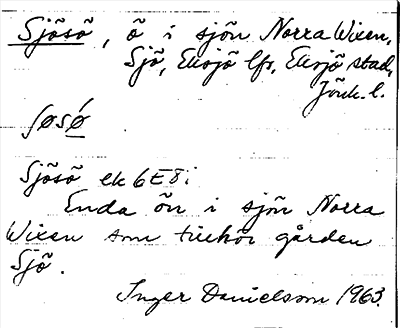 Sjösö, ö i sjön Norra Wixen,
Sjö, Eksjö lfs, Eksjö stad,
Jönk. l.
ʃøsǿ
Sjösö ek 6E8i
Enda ön i sjön Norra
Wixen som tillhör gården
Sjö.
Inger Danielsson 1963.